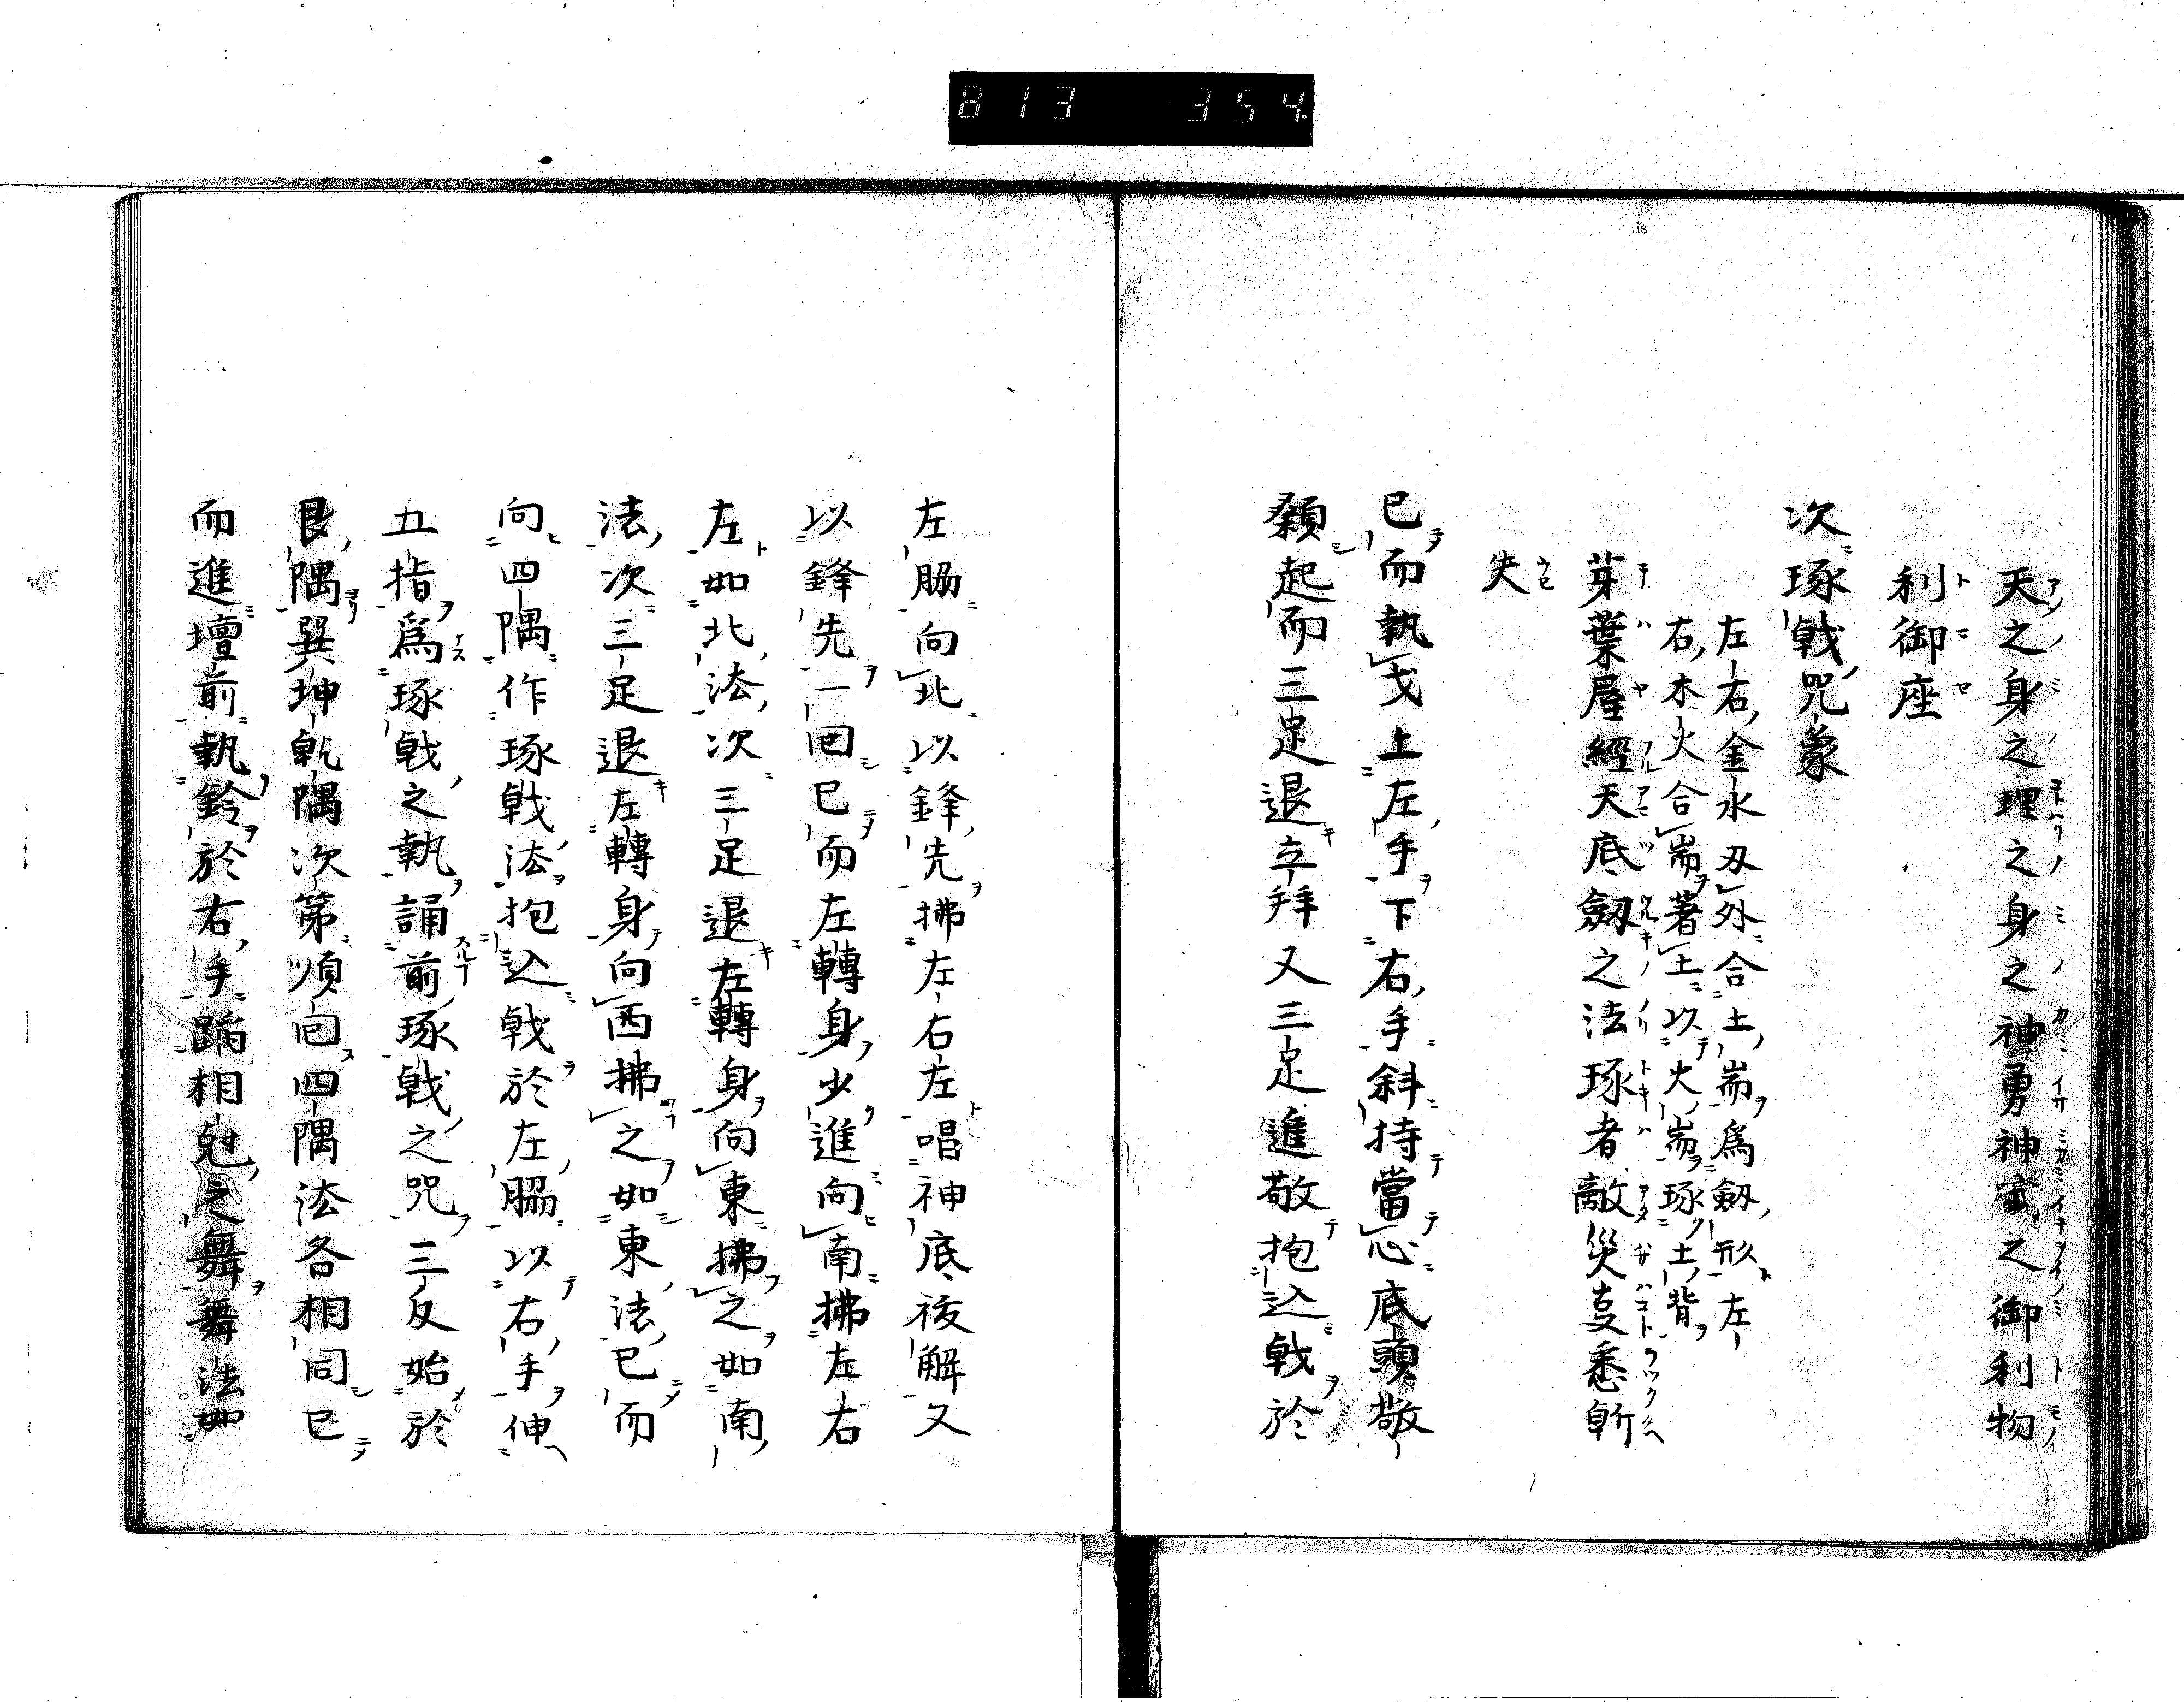 813 354
天之身之理之身之神勇神威之御利物
利御座
次琢戟咒象
左右金水刃外合土耑為劔形左
右木火合耑著土以火耑琢土背
芽葉屋經天底劔之法琢者敵災㕝悉斬
失
已而執戈上左手下右手斜持當心底頭敬
顙起而三足退立拜又三足進敬抱込戟於
左脇向北以鋒先拂左右左唱神底後解又
以鋒先一回已而左轉身少進向南拂左右
左如北法次三足退左轉身向東拂之如南
法次三足退左轉身向西拂之如東法已而
向四隅作琢戟法抱込戟於左脇以右手伸
五指爲琢戟之執誦前琢戟之咒三反始於
艮隅巽坤乾隅次第順向四隅法各相同已
而進壇前執鈴於右手蹈相尅之舞舞法如